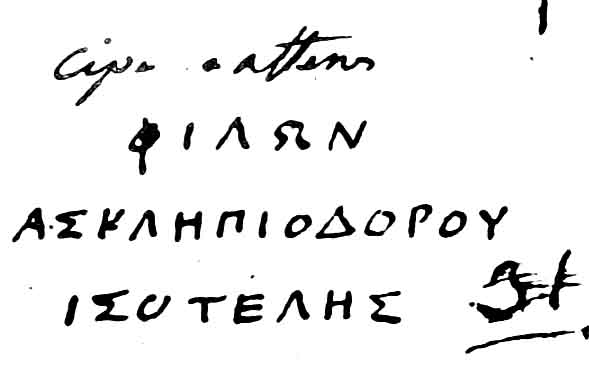 Cipo a attene
ΦΙΛΩΝ
ΑΣΚΛΗΠΙΟΔΟΡΟΥ
ΙΣΟΤΕΛΗΣ